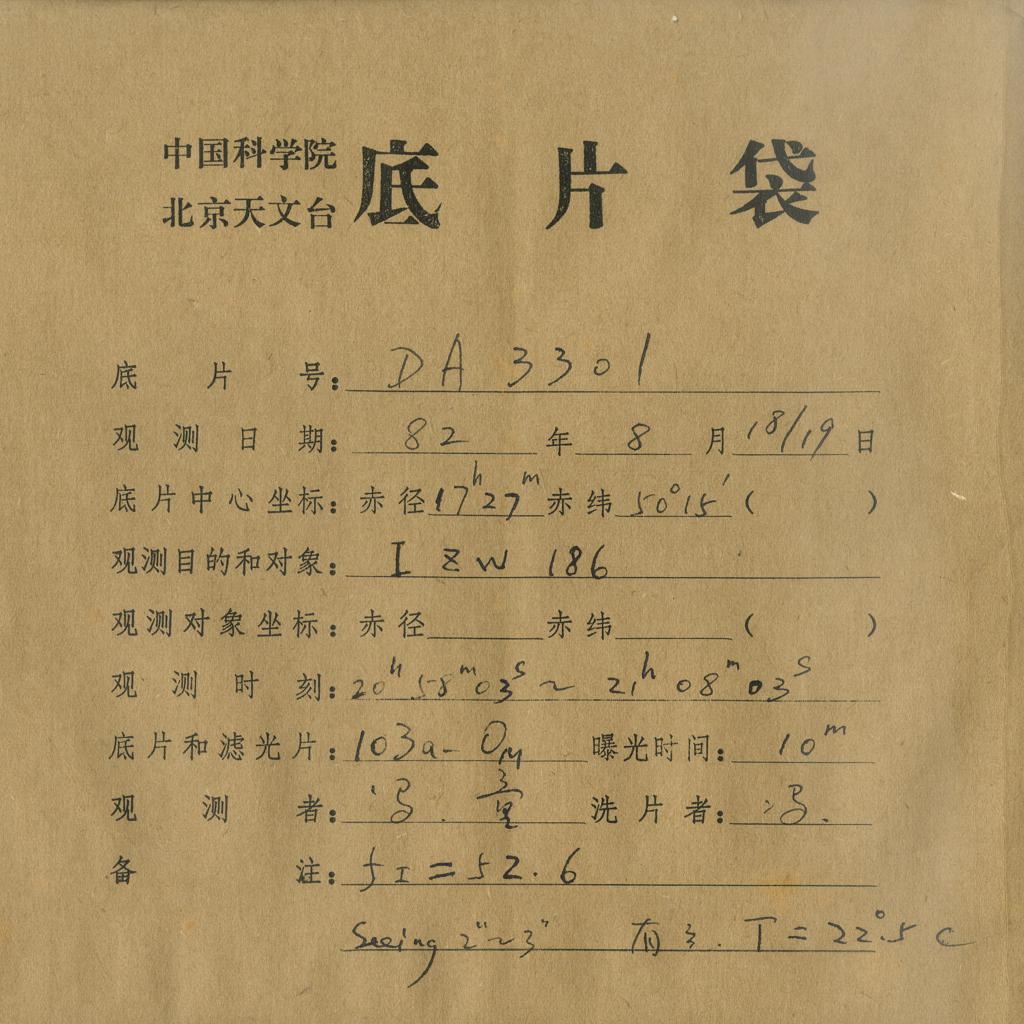 中国科学院
北京天文台 底片袋
底片号: DA 3301
观测日期: 82 年 8 月 18/19 日
底片中心坐标: 赤径 17h27m 赤纬 50°15′ ( )
观测目的和对象: I ZW 186
观测对象坐标: 赤径 赤纬 ( )
观测时刻: 20h 58m 03s ~ 21h 08m 03s
底片和滤光片: 103a-O 曝光时间: 10m
观测者: 冯. 洗片者: 冯.
备注: = 52.6
Seeing 2″~3″ 有 . T = 22°.5 C